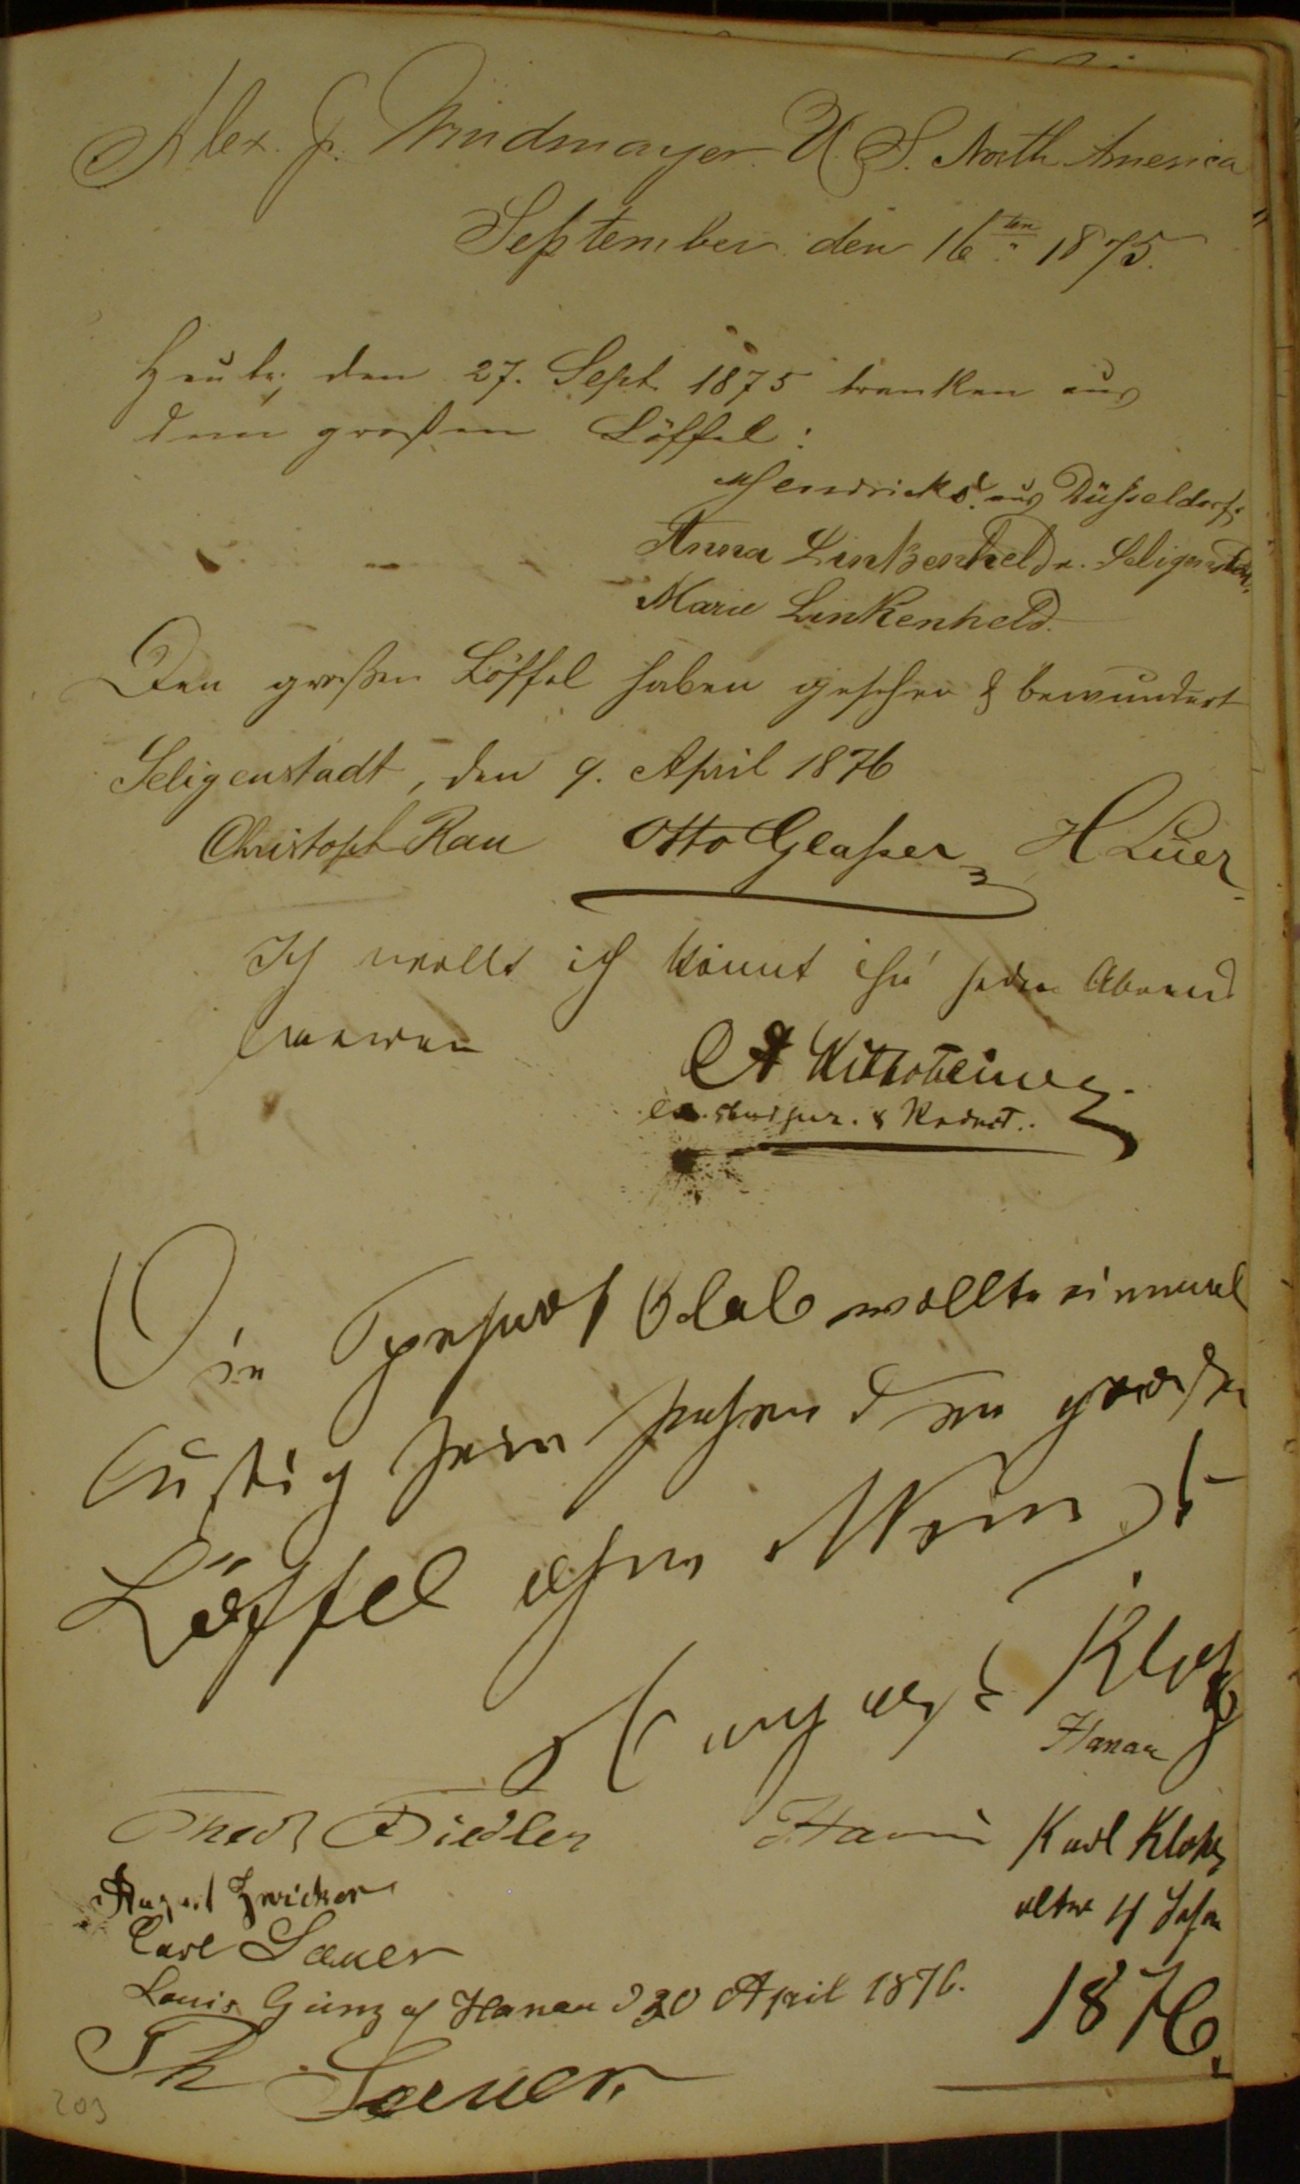 Alex. J. Windmayer U. S. North America
September den 16ten 1875.
Heute, den 27. Sept. 1875 tranken aus
dem großen Löffel:
Hendricks aus Düsseldorf
Anna Linkenheld a. Seligenstadt
Marie Linkenheld.
Den großen Löffel haben gesehen & bewundert
Seligenstadt, den 9. April 1876
Christoph Rau Otto Glaßer H Luer
Ich wollt ich könnt ihn jeden Abend
leeren
Die Spessart Club wollte einmal
lustig sein sahen den großen
Löffel ohne Wein
August Klotz
Hanau
Fried. Fiedler Hanau Karl Klotz
August Zwicker alter 4 Jahre
Carl Sauer
Louis Günz a/ Hanau d 20 April 1876. 1876.
Th Sauer.
203